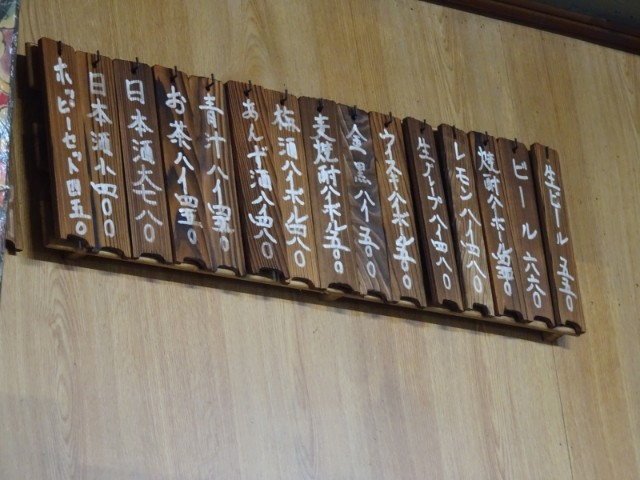 生ビール 五五〇
ビール 六六〇
焼酎ハイボール 四五〇
レモンハイ 四八〇
生グレープハイ 四八〇
ウイスキーハイボール 五〇〇
金黒ハイ 五〇〇
麦焼酎ハイボール 五〇〇
梅酒ハイボール 四八〇
あんず酒ハイ 四八〇
青汁ハイ 四五〇
お茶ハイ 四五〇
日本酒大 七八〇
日本酒小 四〇〇
ホッピーセット 四五〇